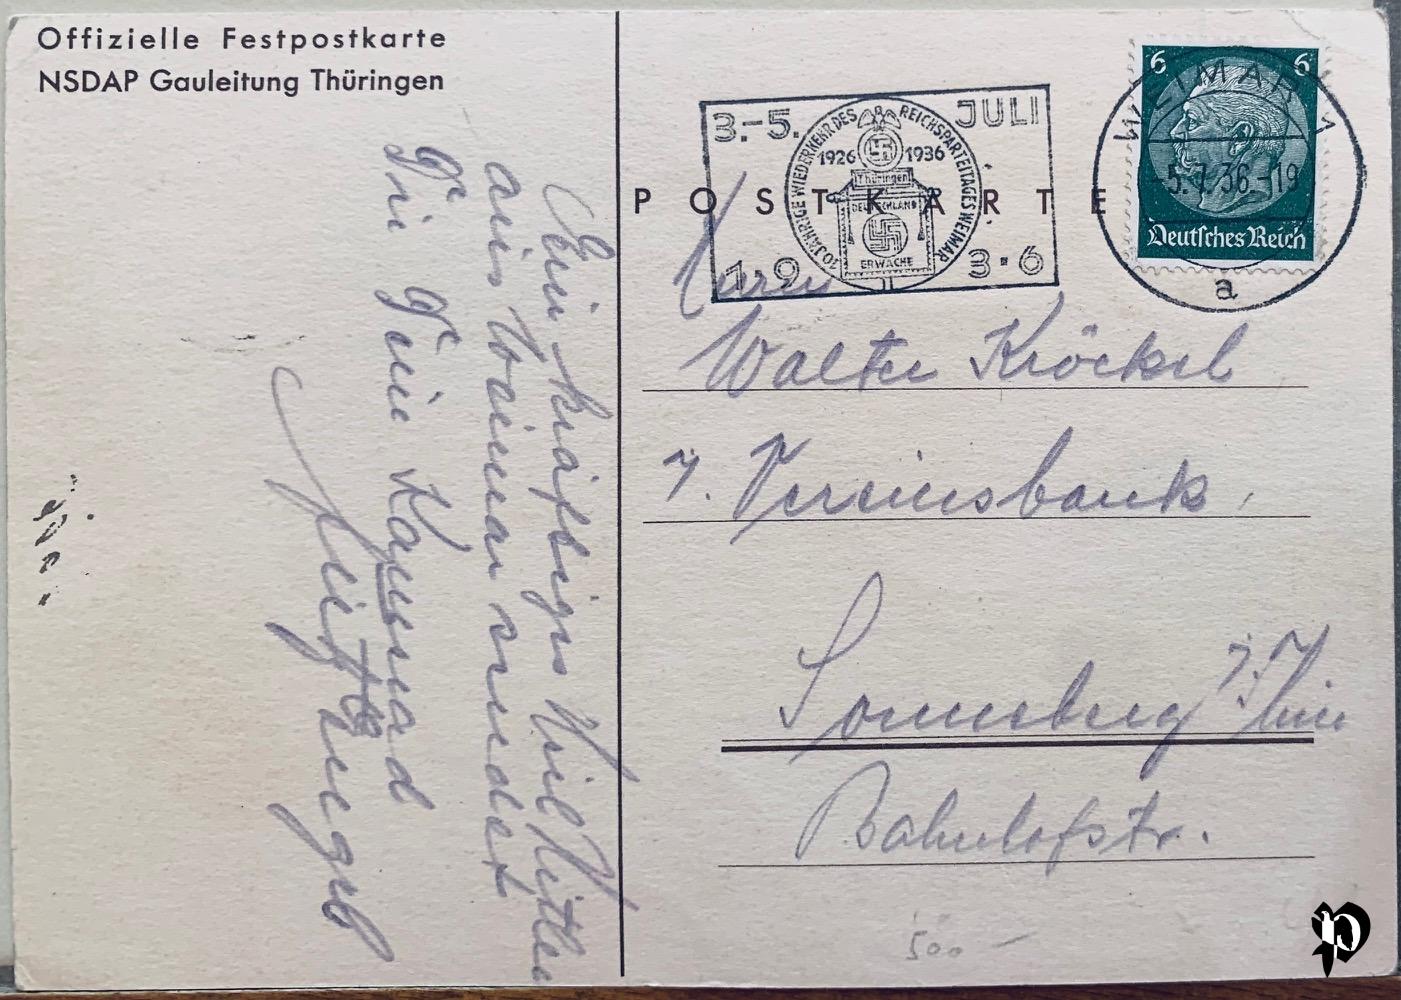 Offizielle Festpostkarte
NSDAP Gauleitung Thüringen
POSTKARTE
3.-5. JULI
10 JÄHRIGE WIEDERKEHR DES REICHSPARTEITAGES WEIMAR
1926 1936
Thüringen
DEUTSCHLAND
ERWACHE
19 3·6
6 6
Deutsches Reich
WEIMAR 1
5.7.36.-19
a
Ein kräftiges Heil Hitler
aus Weimar sendet
Dir Dein Kamerad
Herrn
Walter Kröckel
Vereinsbank
Sonneberg i. Thür
Bahnhofstr.
500